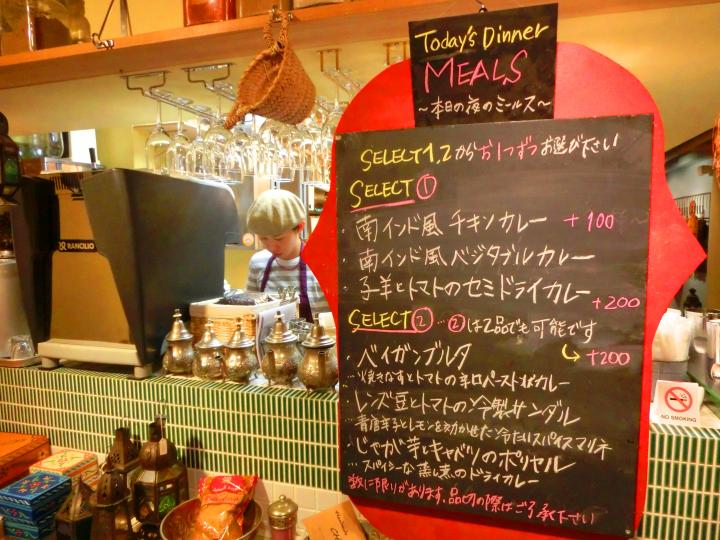 Today's Dinner
MEALS
～本日の夜のミールス～
SELECT 1,2から お1つずつ お選び下さい
SELECT ①
・南インド風 チキンカレー +100
・南インド風 ベジタブルカレー
・子羊とトマトのセミドライカレー +200
SELECT ② …②は2品でも可能です
→ +200
・ベイガンブルタ
…焼きなすとトマトの辛口ペースト状カレー
・レンズ豆とトマトの冷製サンダル
…青唐辛子とレモンを効かせた冷たいスパイスマリネ
・じゃが芋とキャベツのポリヤル
…スパイシーな蒸し煮のドライカレー
数に限りがあります。品切の際はご了承下さい
RANCILIO
NO SMOKING